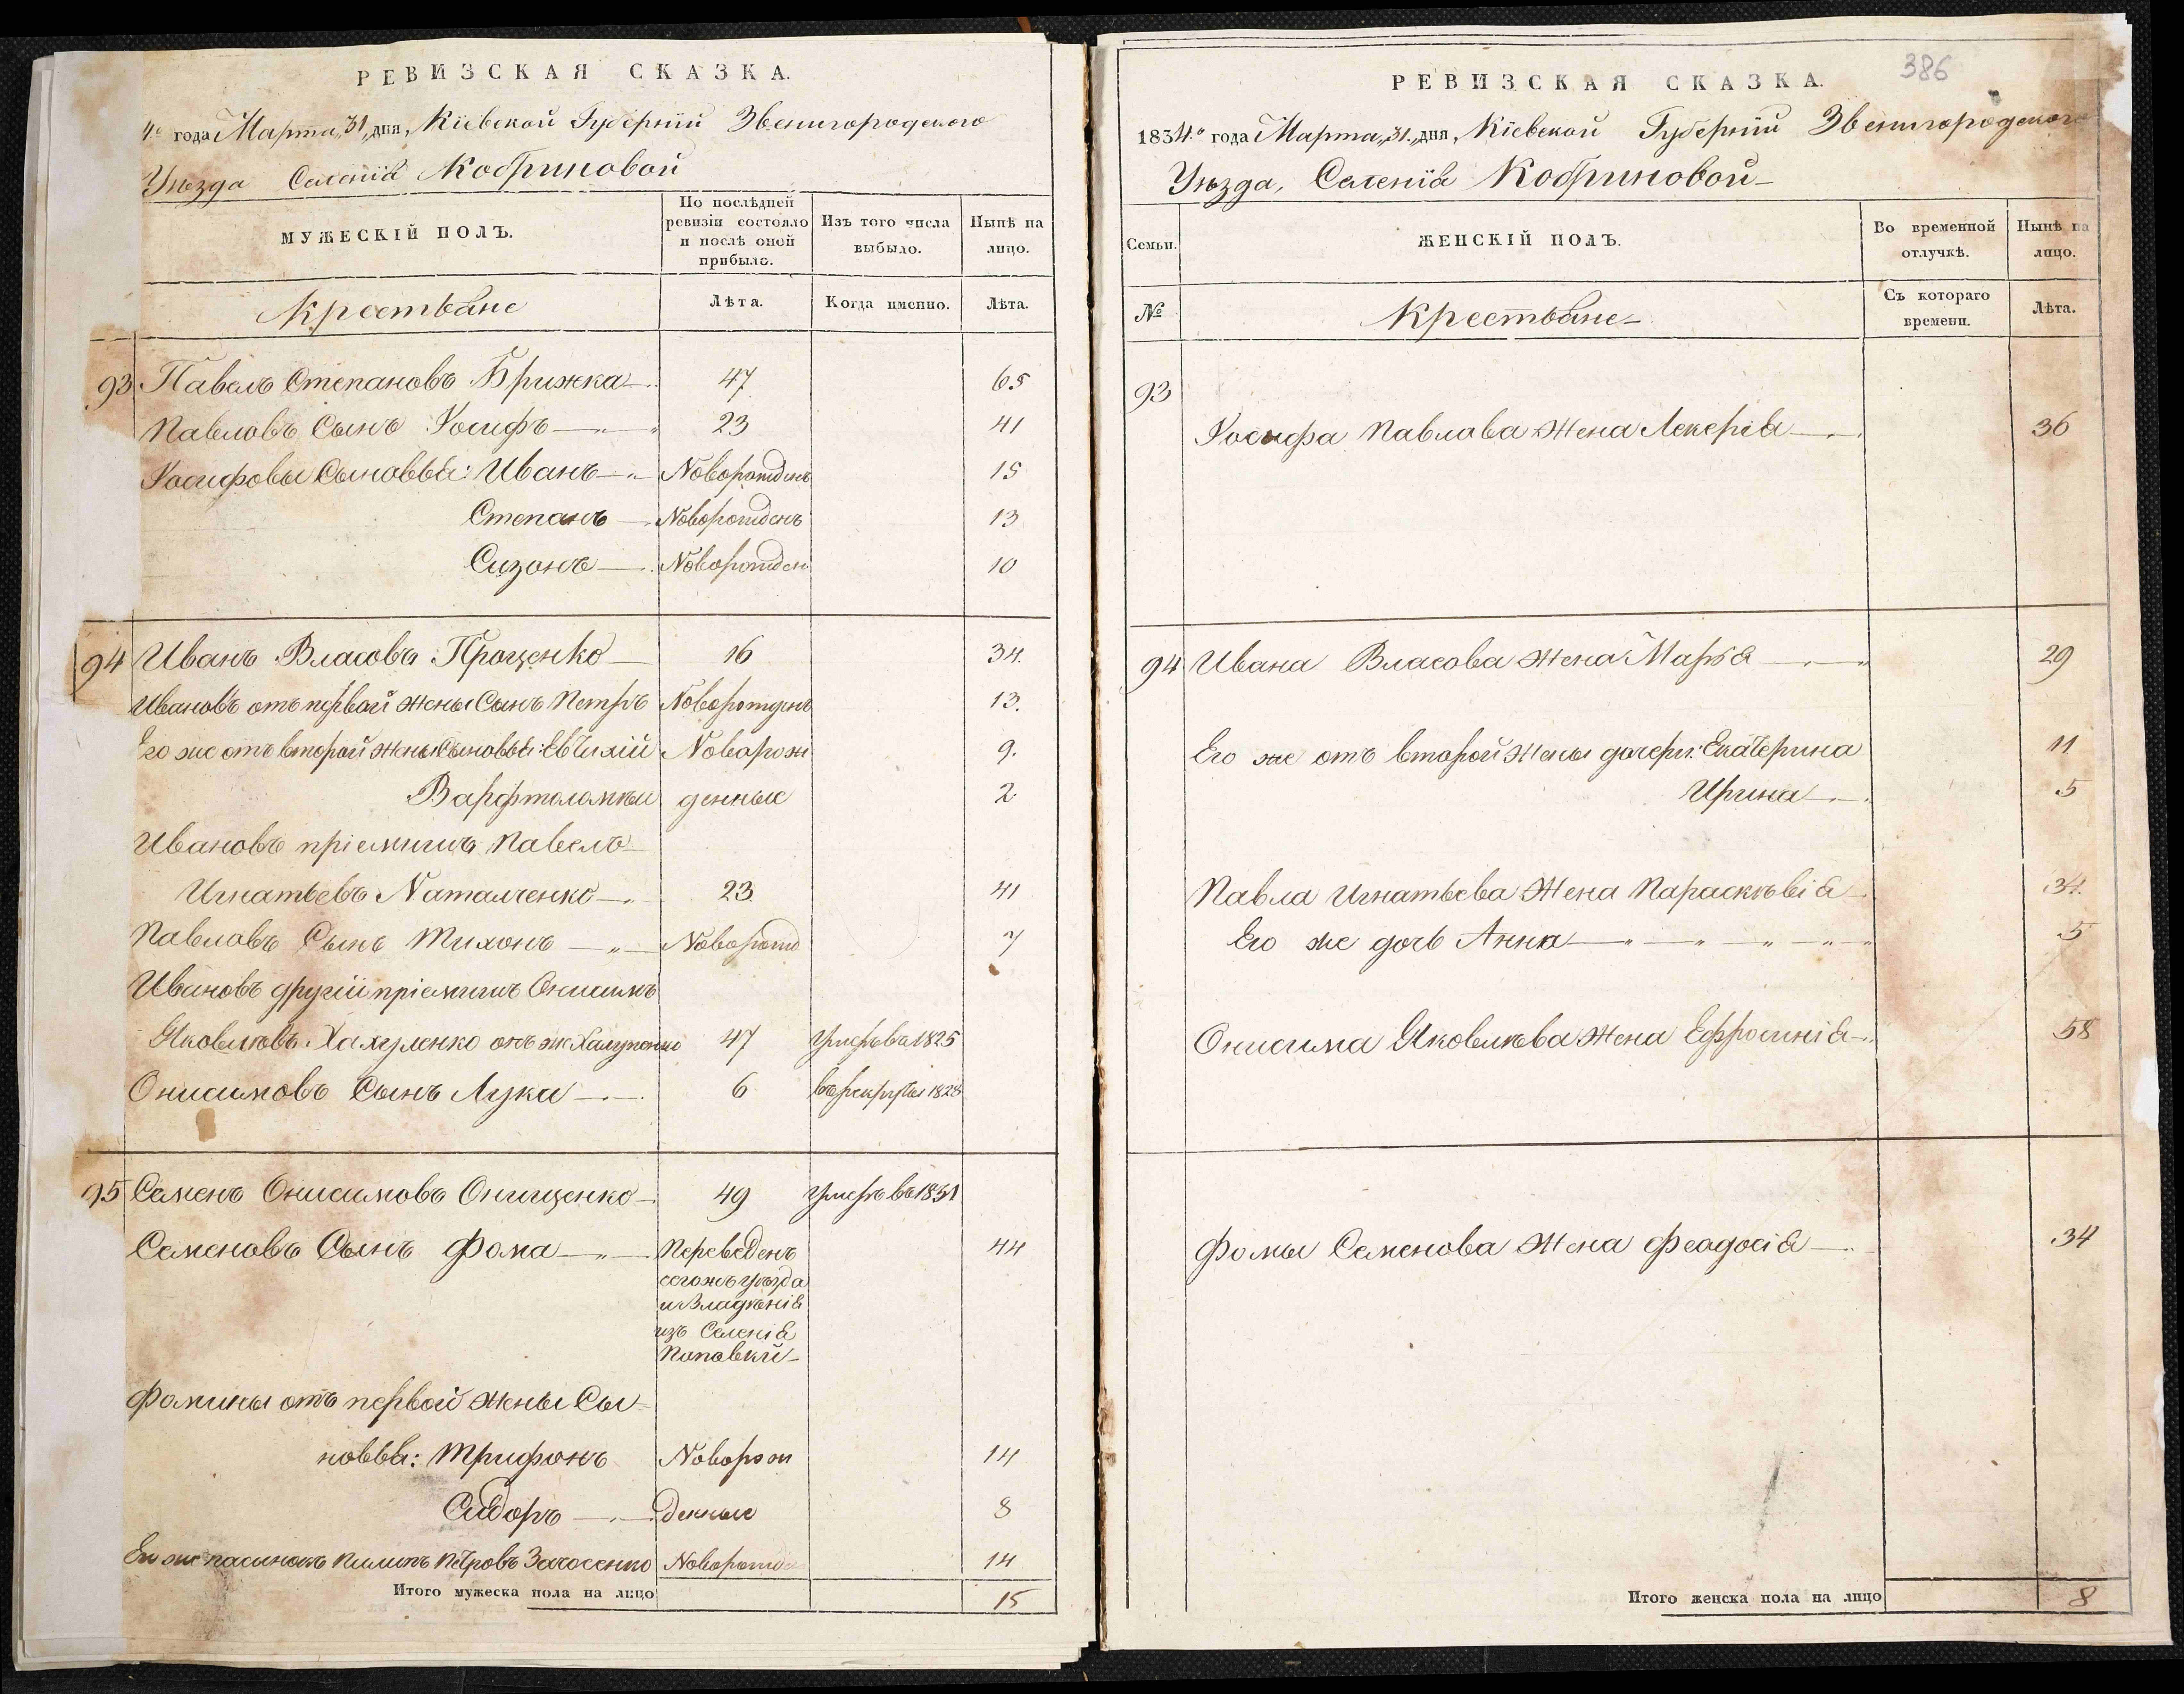 РЕВИЗСКАЯ СКАЗКА.
4.го года Марта „31„ дня, Кіевской Губерніи Звенигородского
Уѣзда Селенія Кобриновой
МУЖЕСКІЙ ПОЛЪ.
По послѣдней ревизіи состояло и послѣ оной прибыло.
Изъ того числа выбыло.
Нынѣ на лицо.
Крестьяне
Лѣта.
Когда именно.
Лѣта.
93 Павелъ Степановъ Брижка 47 65
Павловъ Сынъ Іосифъ 23 41
Іосифовы Сыновья: Иванъ Новорожденъ 15
Степанъ Новорожденъ 13
Сизонъ Новорожден 10
94 Иванъ Власовъ Проценко 16 34.
Ивановъ отъ первой жены Сынъ Петръ Новорожденъ 13.
Его же отъ второй жены Сыновья: Евтихій Новорож 9.
Варфтоломѣй денные 2
Ивановъ пріемышъ Павелъ
Игнатьевъ Наталченко 23 41
Павловъ Сынъ Тихонъ Новорожд 7
Ивановъ другій пріемышъ Онисимъ
Яковлевъ Халуленко онъ же Халупенко 47 Умеръ въ 1825
Онисимовъ Сынъ Лука 6 въ рекруты 1828
95 Семенъ Онисимовъ Онищенко 49 Умеръ въ 1831
Семеновъ Сынъ Фома Переведенъ 44
сегожъ уѣзда
и Владѣнія
изъ Селенія
Поповкий
Фомины отъ первой жены Сы-
новья: Трифонъ Новорож 14
Сидоръ денные 8
Его же пасынокъ Пилипъ Петровъ Новорожде 14
Итого мужеска пола на лицо 15
386
РЕВИЗСКАЯ СКАЗКА.
1834.го года Марта „31.„ дня, Кіевской Губерніи Звенигородского
Уѣзда, Селенія Кобриновой
Семьи.
ЖЕНСКІЙ ПОЛЪ.
Во временной отлучкѣ.
Нынѣ на лицо.
№
Крестьяне
Съ котораго времени.
Лѣта.
93
Іосифа Павлова Жена Лекерія 36
94 Ивана Власова Жена Марья 29
Его же отъ второй Жены дочери: Екатерина 11
Ирина 5
Павла Игнатьева Жена Параскѣвія 34.
Его же дочь Анна 5
Онисима Яковлѣва Жена Ефросинія 58
Фомы Семенова Жена Феодосія 34
Итого женска пола на лицо 8